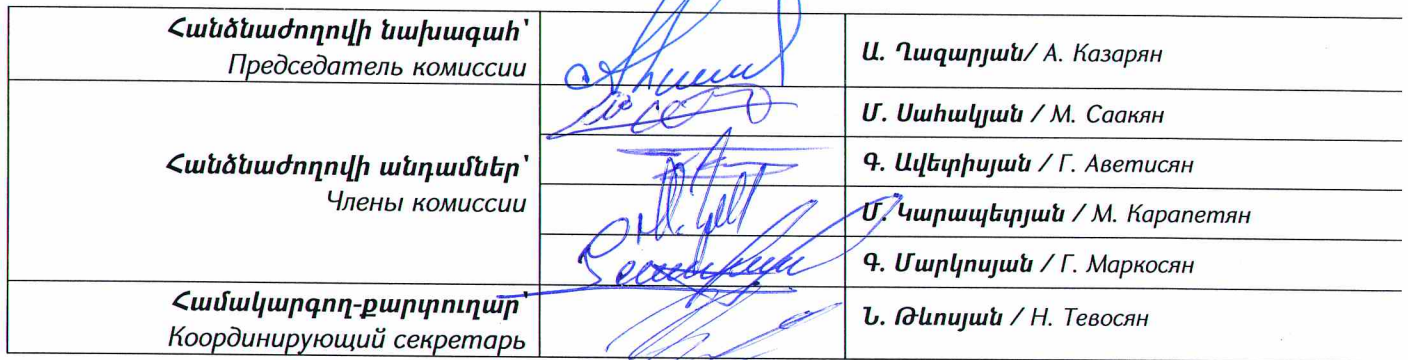 Հանձնաժողովի նախագահ՝
Председатель комиссии
Ա. Ղազարյան/ А. Казарян
Մ. Սահակյան / М. Саакян
Հանձնաժողովի անդամներ՝
Члены комиссии
Գ. Ավետիսյան / Г. Аветисян
Մ. Կարապետյան / М. Карапетян
Գ. Մարկոսյան / Г. Маркосян
Համակարգող-քարտուղար՝
Координирующий секретарь
Ն. Թևոսյան / Н. Тевосян